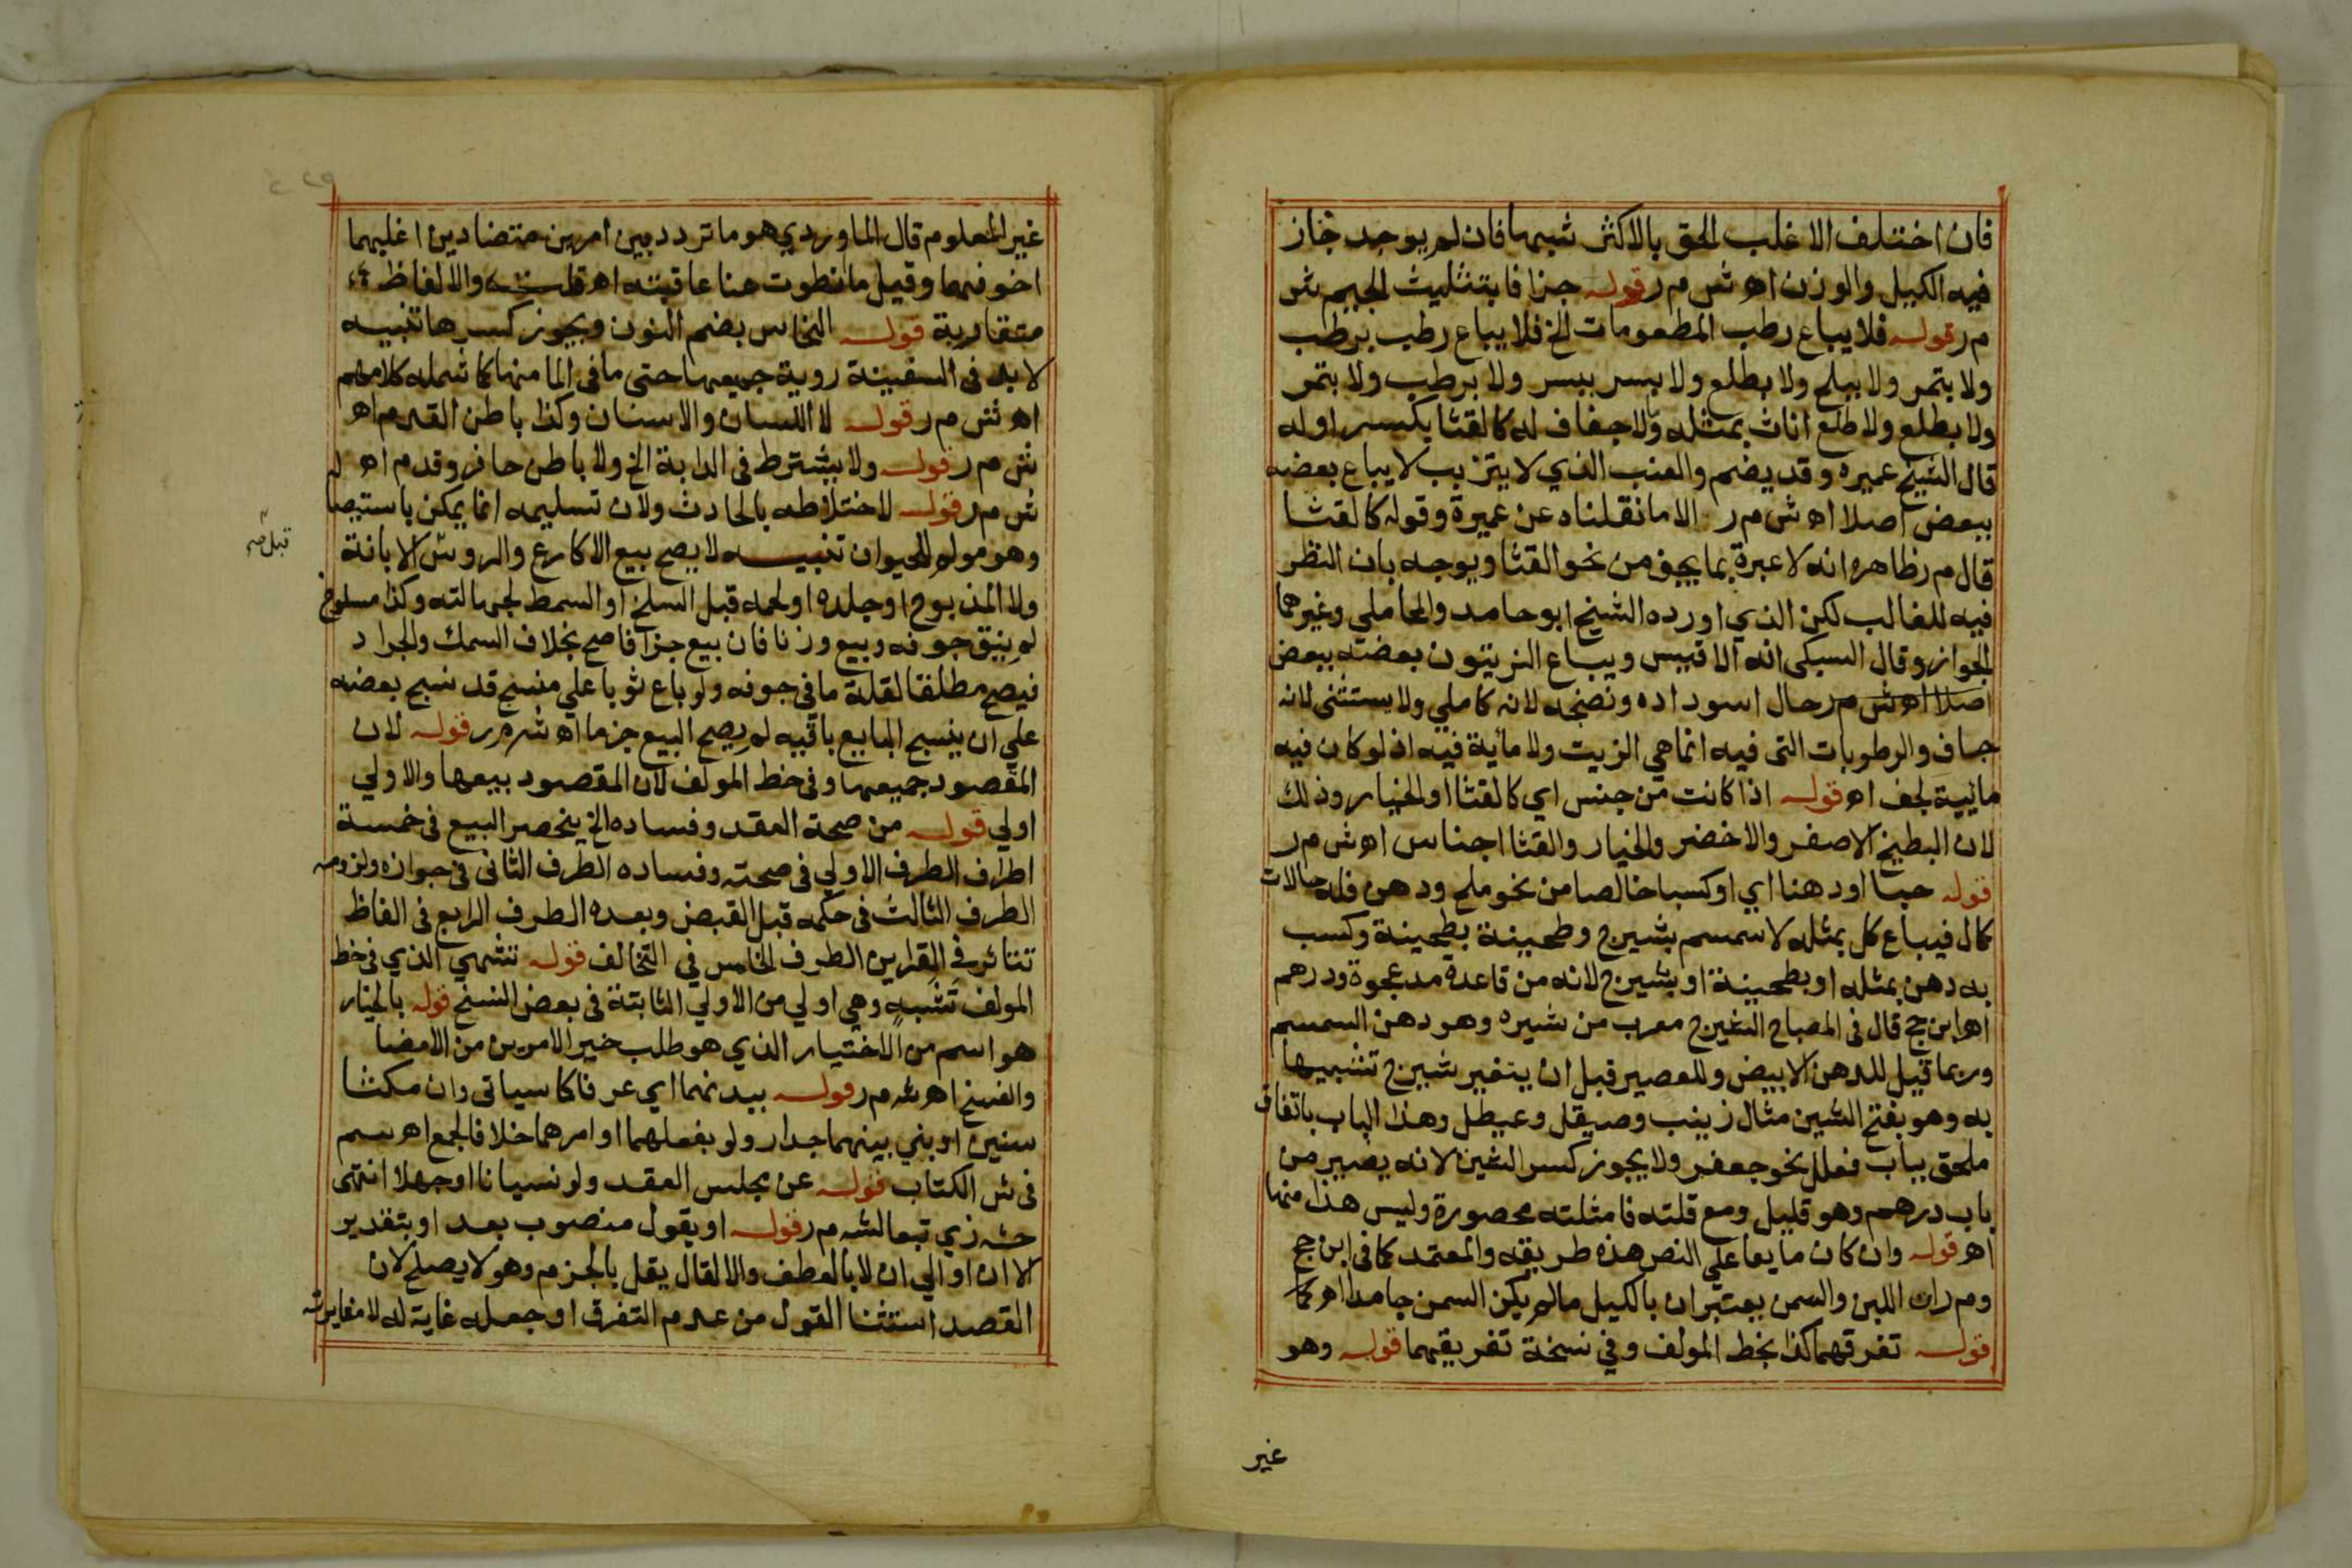 فان اختلف الاغلب الحق بالاكثر شبها فان لم يوجد جاز
فيه الكيل والوزن اه ش م ر قوله جزافا بتثليث الجيم ش
م ر قوله فلا يباع رطب المطعومات الخ فلا يباع رطب برطب
ولا بتمر ولا ببلح ولا بطلع ولا بسر ببسر ولا برطب ولا بتمر
ولا بطلع ولا طلع اناث بمثله ولا جفاف له كالقثا بكسر اوله
قال الشيخ عميره وقد يضم والعنب الذي لا يتزبب لا يباع بعضه
ببعض اصلا اه ش م ر الا ما نقلناه عن عميرة وقوله كالقثا
قال م ر ظاهره انه لا عبرة بما يجف من نحو القثا ويوجه بان النظر
فيه للغالب لكن الذي اورده الشيخ ابو حامد والمحاملي وغيرهما
الجواز وقال السبكى انه الاقيس ويباع الزيتون بعضه ببعض
اصلا اه ش م ر حال اسوداده ونضجه لانه كاملي ولا يستثنى لانه
جاف والرطوبات التى فيه انما هي الزيت ولا مأية فيه اذ لو كان فيه
مائية لجف اه قوله اذا كانت من جنس اي كالقثا او الخيار وذلك
لان البطيخ الاصفر والاخضر والخيار والقثا اجناس اه ش م ر
قوله حبا او دهنا اي او كسبا خالصا من نحو ملح ودهن فله حالات
كمال فيباع كل بمثله لا سمسم بشيرج وطحينة بطحينة وكسب
به دهن بمثله او بطحينة او بشيرج لانه من قاعدة مد عجوة ودرهم
اه ابن حج قال فى المصباح الشيرج معرب من شيره وهو دهن السمسم
وربما قيل للدهن الابيض وللعصير قبل ان يتغير شيرج تشبيها
به وهو بفتح الشين مثال زينب وصيقل وعيطل وهذا الباب باتفاق
ملحق بباب فعلل نحو جعفر ولا يجوز كسر الشين لانه يصير من
باب درهم وهو قليل ومع قلته فامثلته محصورة وليس هذا منها
اه قوله وان كان مايعا علي النص هذه طريقه والمعتمد كما فى ابن حج
وم ر ان اللبن والسمن يعتبران بالكيل ما لم يكن السمن جامدا اه كما
قوله تفرقهما كذا بخط المولف وفي نسخة تفريقهما قوله وهو
غير
غير المعلوم قال الماوردي هو ما تردد بين امرين متضادين اغلبهما
اخوفهما وقيل ما نطوت عنا عاقبته اه قلت والالفاظ
متقاربة قوله النحاس بضم النون ويجوز كسرها تنبيه
لا بد فى السفينة روية جميعها حتى ما فى الما منها كما شمله كلامهم
اه ش م ر قوله لا اللسان والاسنان وكذا باطن القدم اه
ش م ر قوله ولا يشترط فى الدابة الخ ولا باطن حافر وقدم اه
ش م ر قوله لاختلاطه بالحادث ولان تسليمه انما يمكن باستيصا
وهو مولم للحيوان تنبيه لا يصح بيع الاكارع والروس الابانة
قبل صح
ولا المذبوح او جلده او لحمه قبل السلخ او السمط لجهالته وكذا مسلوخ
لم ينق جوفه وبيع وزنا فان بيع جزافا صح بخلاف السمك والجراد
فيصح مطلقا لقلة ما فى جوفه ولو باع ثوبا علي منسج قد نسج بعضه
علي ان ينسج البايع باقيه لم يصح البيع جزما اه ش م ر قوله لان
المقصود جميعها وفى خط المولف لان المقصود بيعها والاولي
اولي قوله من صحة العقد وفساده الخ ينحصر البيع فى خمسة
اطراف الطرف الاولي فى صحته وفساده الطرف الثانى فى جوازه ولزومه
الطرف الثالث فى حكمه قبل القبض وبعده الطرف الرابع فى الفاظ
تتاثر فى القراين الطرف الخامس في التخالف قوله تشهي الذي فى خط
المولف تشبه وهي اولي من الاولي الثابتة فى بعض النسخ قوله بالخيار
هو اسم من الاختيار الذي هو طلب خير الامرين من الامضا
والفسخ اه ش م ر قوله ببدنهما اي عرفا كما سياتى وان مكثا
سنين او بني بينهما جدار ولو بفعلهما او امرهما خلافا لجمع اه سم
فى ش الكتاب قوله عن مجلس العقد ولو نسيانا او جهلا انتهى
حشه زي تبعا لشه م ر قوله او يقول منصوب بعد او بتقدير
الا ان او الي ان لا بالعطف والا لقال يقل بالجزم وهو لا يصلح لان
القصد استثنا القول من عدم التفرق او جعله غاية له لا مغايرته